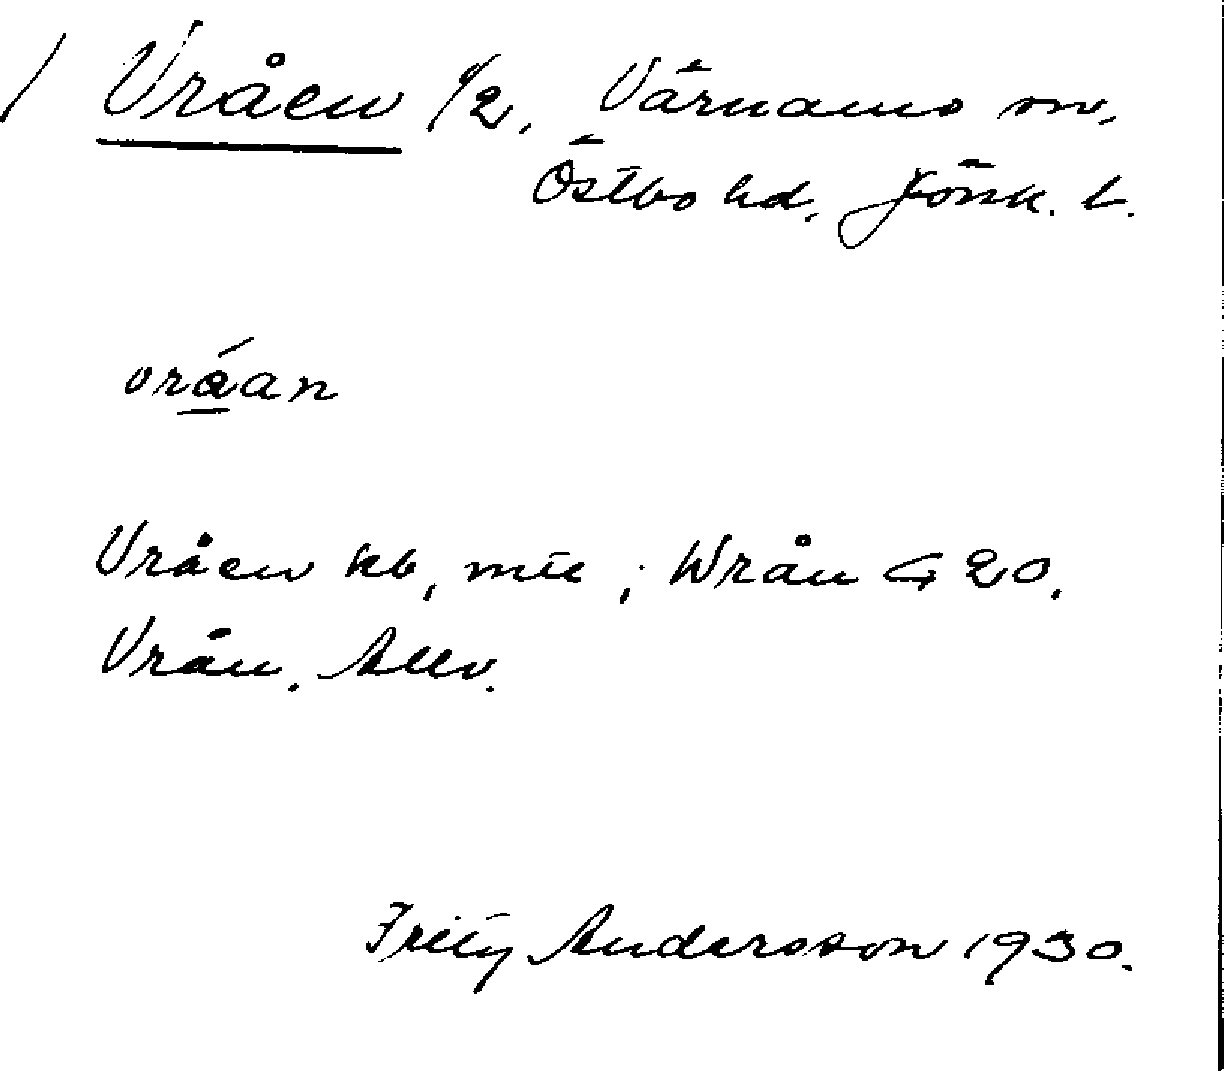 / Vråen 1/2, Värnamo sn,
Östbo hd, Jönk. l.
vráan
Vråen kb, mtl ; Wrån G 20.
Vrån. Allv.
Fritz Andersson 1930.